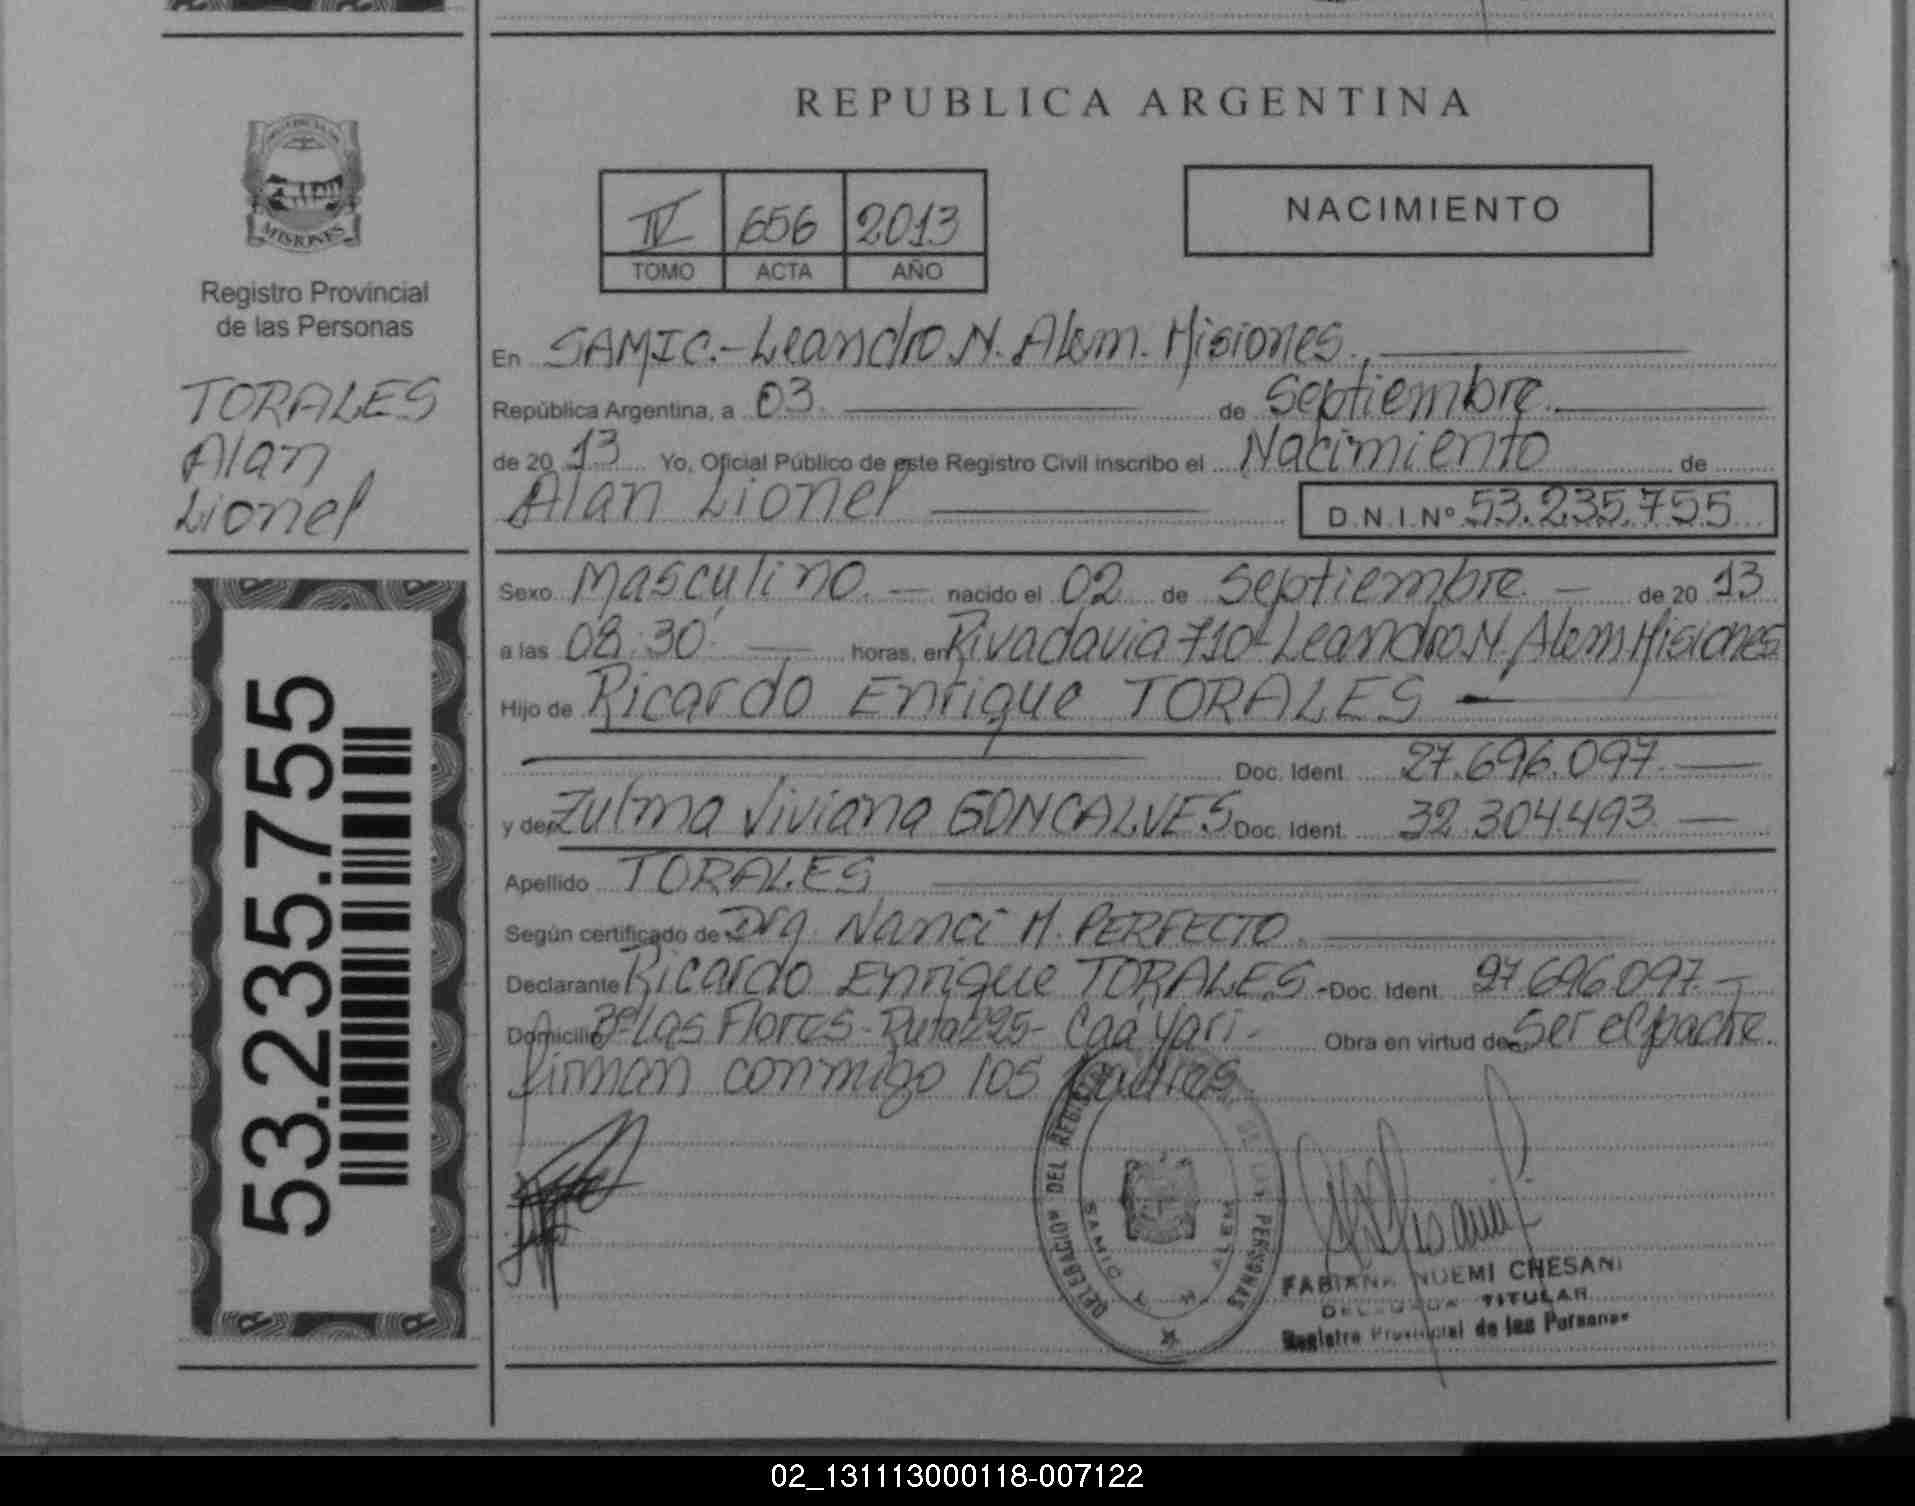 REPUBLICA ARGENTINA
MISIONES
Registro Provincial
de las Personas
TORALES
Alan
Lionel
53.235.755
IV 656 2013
TOMO ACTA AÑO
NACIMIENTO
En SAMIC.-Leandro N. Alem. Misiones.
República Argentina, a 03. de Septiembre.
de 20 13 Yo, Oficial Público de este Registro Civil inscribo el Nacimiento de
Alan Lionel D.N.I.Nº 53.235.755
Sexo Masculino. nacido el 02 de Septiembre. de 20 13
a las 08:30 horas, en Rivadavia 710-Leandro N. Alem Misiones
Hijo de Ricardo Enrique TORALES
Doc. Ident. 27.696.097.
y de Zulma Viviana GONCALVES Doc. Ident. 32.304.493
Apellido TORALES
Según certificado de Dra. Nanci M. PERFECTO.
Declarante Ricardo Enrique TORALES.- Doc. Ident. 27.696.097.-
Domicilio Bº Las Flores-Ruta 225- Caá Yari- Obra en virtud de Ser el padre.
firman conmigo los padres.
DEL REGISTRO DE LAS PERSONAS
SAMIC ALEM
FABIANA NOEMI CHESANI
DELEGADA TITULAR
Registro Provincial de las Personas
02_131113000118-007122